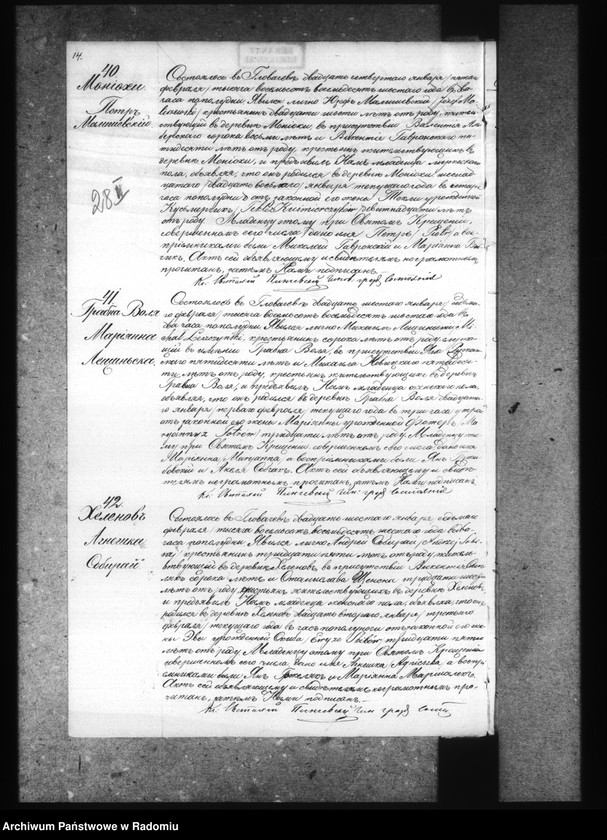 14.
40
Монiохи
Петръ
Малишевскiй
Состоялось въ Гловачевѣ двадцать четвертаго января /пятаго
февраля/ тысяча восемьсотъ восемьдесятъ шестаго года въ два
часа пополудни. Явился лично Iосифъ Малишевскiй
крестьянинъ двадцати шести лѣтъ отъ роду, житель-
ствующiй въ деревнѣ Монiохи въ присутствiи Валентiя
сорока восьми лѣтъ и Викентiя Гавронскаго пя-
тидесяти лѣтъ отъ роду, крестьянъ жительствующихъ въ
деревнѣ Монiохи, и предъявилъ Намъ младенца мужескаго
пола, объявляя, что онъ родился въ деревнѣ Монiохи шеснад-
цатаго /двадцать восьмаго/ января текущаго года въ
часа пополудни отъ законной его жены Теклi урожденной
девятнадцати лѣтъ
отъ роду. Младенцу этому при Святомъ Крещенiи
совершенномъ сего числа дано имя Петръ /Piotr/ а вос-
прiемниками были Николай Гавронскiй и Марiанна
Актъ сей объявляющему и свидѣтелямъ неграмотнымъ
прочитанъ, затѣмъ Нами подписанъ.
Кс. Чин. гражд. сост.
28 II
41
Грабна Воля
Марiанна
Лещинска
Состоялось въ Гловачевѣ двадцать шестаго января /седьма-
го февраля/ тысяча восемьсотъ восемьдесятъ шестаго года въ
два часа пополудни. Явился лично Михаилъ Лещинскiй
крестьянинъ сорока лѣтъ отъ роду,
въ имѣнiи Грабна Воля, въ присутствiи
пятидесяти лѣтъ и Михаила пятидеся-
ти лѣтъ отъ роду, крестьянъ жительствующихъ въ деревнѣ
Грабна Воля, и предъявилъ Намъ младенца женскаго пола,
объявляя, что онъ родился въ деревнѣ Грабна Воля двадцата-
го января /перваго февраля/ текущаго года въ три часа утра
отъ законной его жены Марiанны урожденной
тридцати лѣтъ отъ роду. Младенцу это-
му при Святомъ Крещенiи совершенномъ сего числа дано имя
Марiанна, а воспрiемниками были Янъ
и Анеля Актъ сей объявляющему и свидѣ-
телямъ неграмотнымъ прочитанъ, затѣмъ Нами подписанъ
Кс. Чин. гражд. состоянiя
42
Хеленовъ
Агнешка
Сибирай
Состоялось въ Гловачевѣ двадцать шестаго января /седьмаго
февраля/ тысяча восемьсотъ восемьдесятъ шестаго года въ два
часа пополудни. Явился лично Андрей Сибирай
крестьянинъ тридцати пяти лѣтъ отъ роду, житель-
ствующiй въ деревнѣ Хеленовъ въ присутствiи
сорока лѣтъ и Станислава тридцати
лѣтъ отъ роду, крестьянъ жительствующихъ въ деревнѣ Хеленовъ,
и предъявилъ Намъ младенца женскаго пола, объявляя, что онъ
родился въ деревнѣ Хеленовъ двадцать втораго января /третьяго
февраля/ текущаго года въ часъ пополуночи отъ законной его же-
ны Эвы урожденной тридцати пяти
лѣтъ отъ роду. Младенцу этому при Святомъ Крещенiи
совершенномъ сего числа, дано имя Агнешка, а воспрi-
емниками были Янъ и Марiанна
Актъ сей объявляющему и свидѣтелямъ неграмотнымъ про-
читанъ, затѣмъ Нами подписанъ.
Кс. Чин. гражд. сост.
Archiwum Państwowe w Radomiu